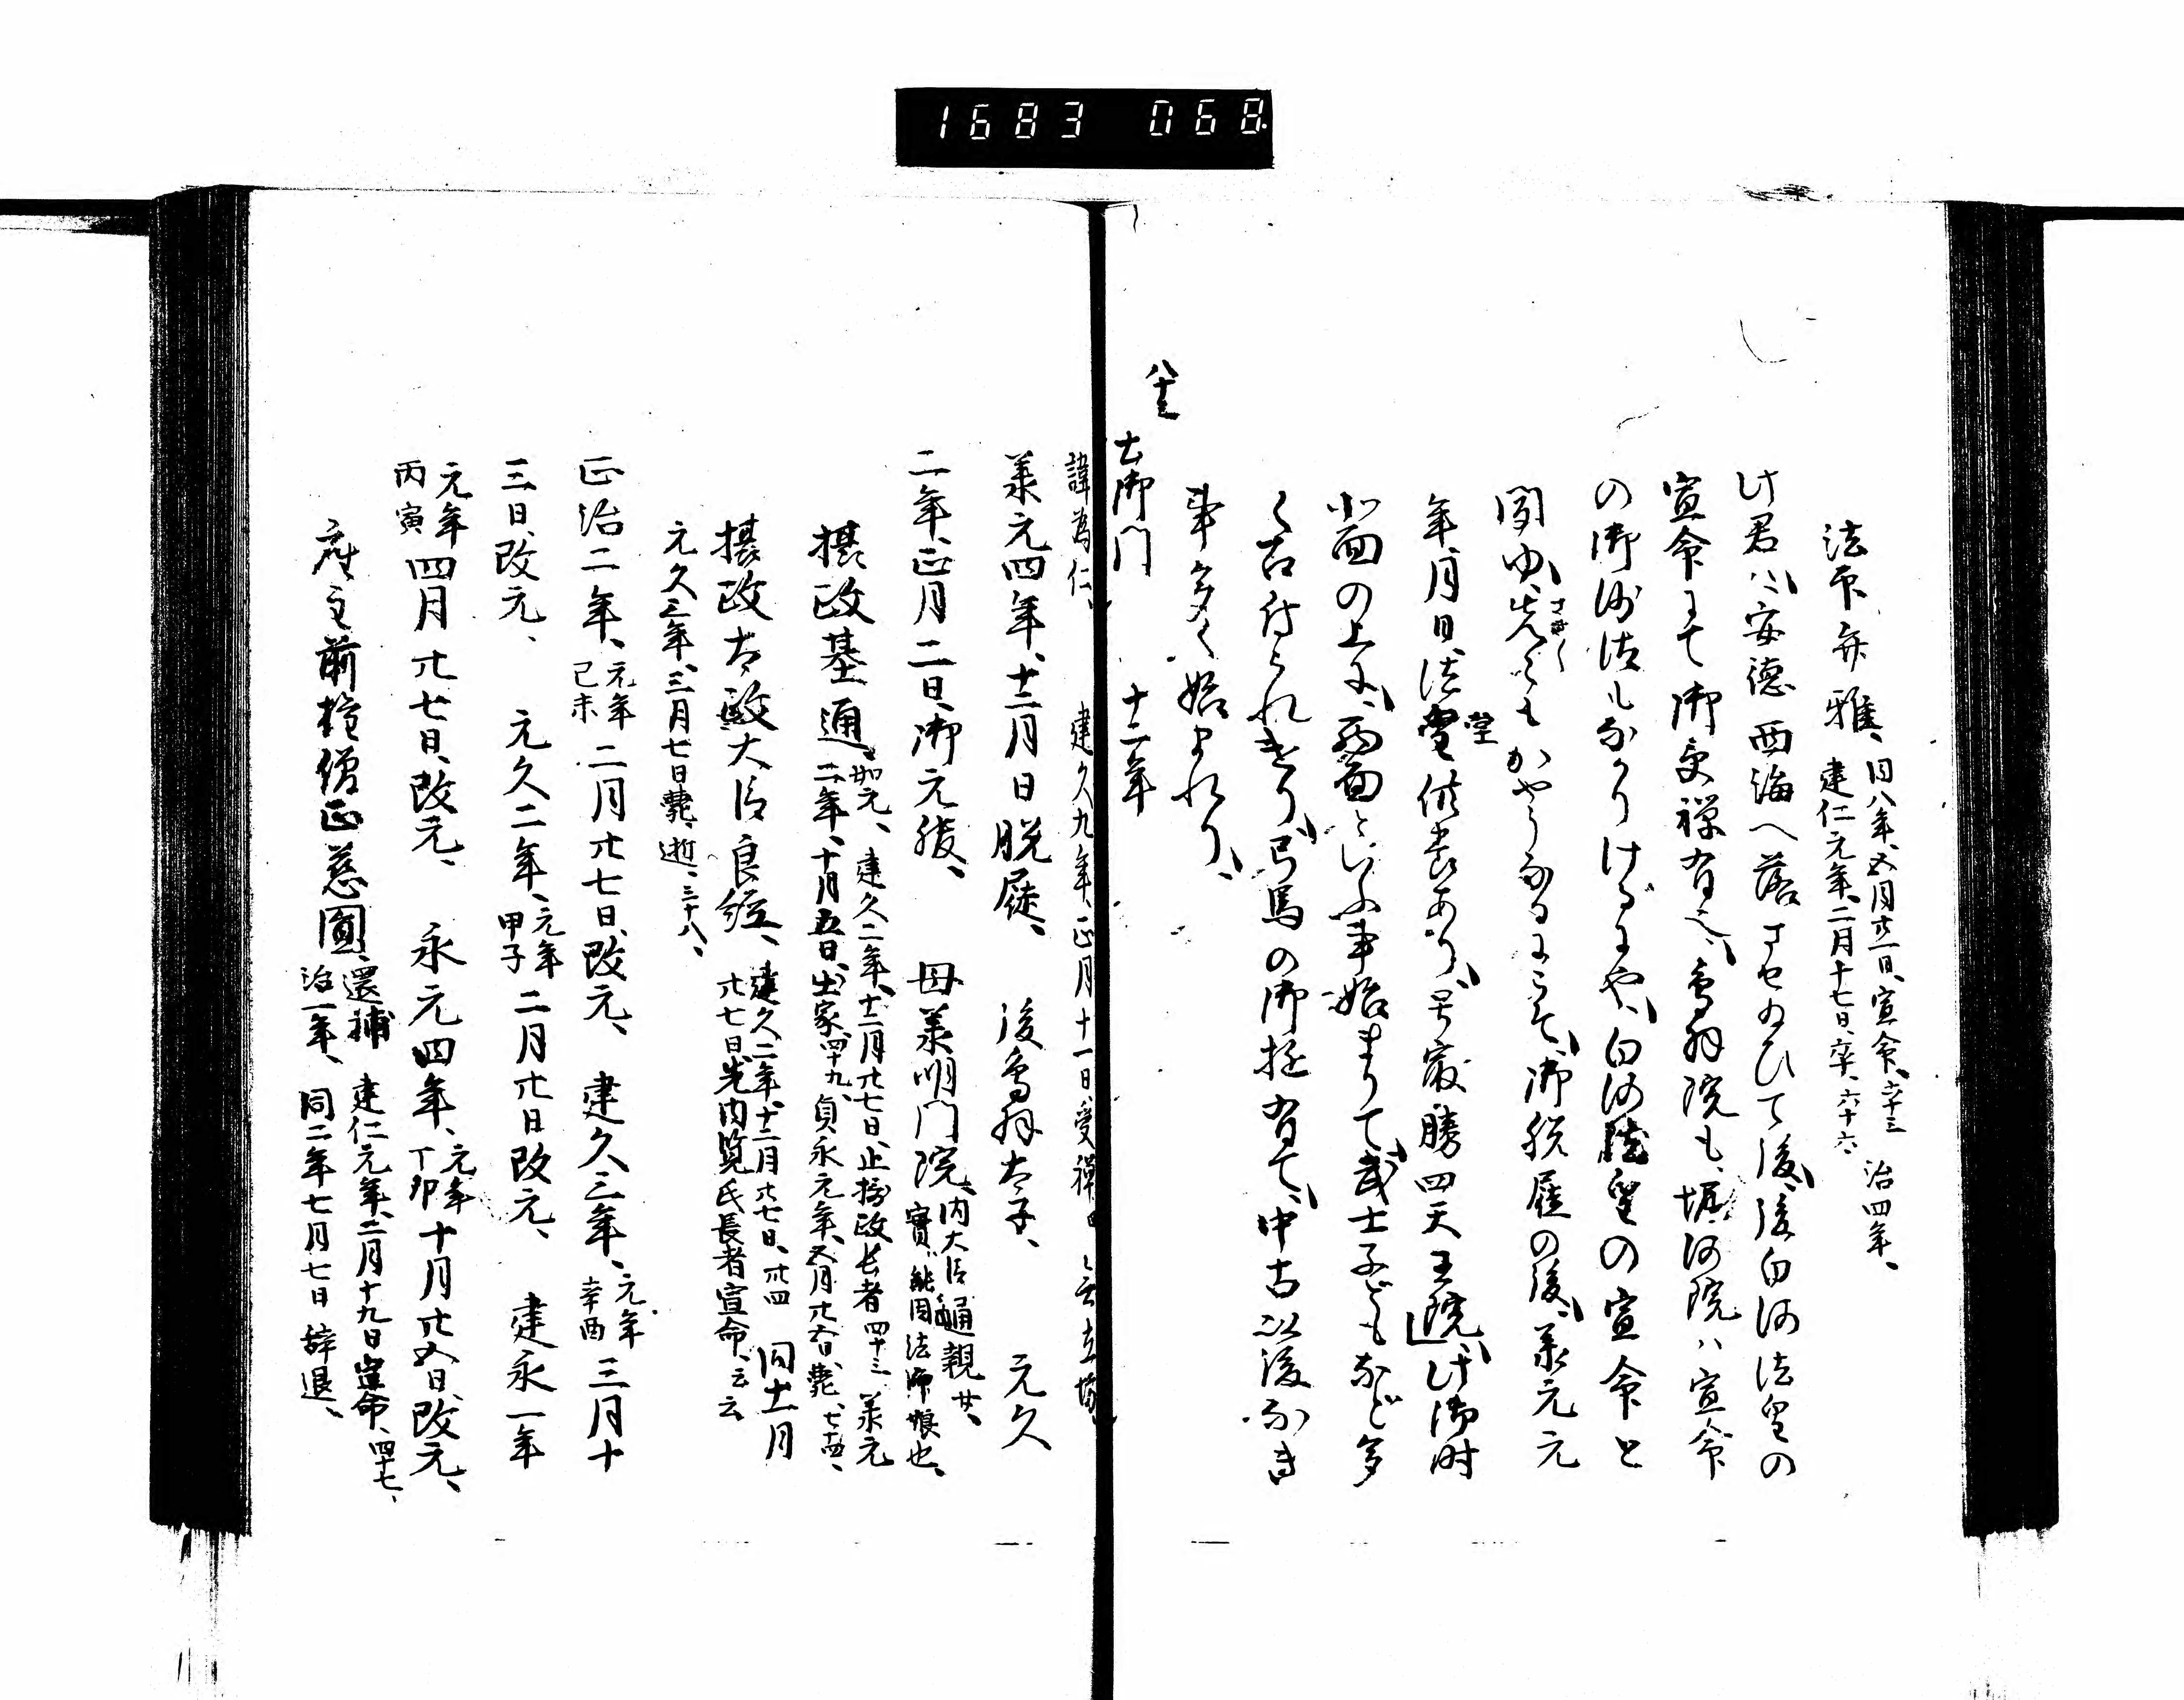 1683 068
法印弁雅、同八年、五月廿一日、宣命、六十三 治四年、
建仁元年、二月十七日、卒、六十六
此君ハ、安徳西海へ落サセ給ひて後、後白河法皇の
宣命にて御受禅有之、鳥羽院も、堀河院ハ宣命
の御沙法もなかりけるにや、白河法皇の宣命と
聞ゆ、先々もかやうなるにこそ、御脱屣の後、承元元
年、月日、法堂供養あり、号最勝四天王院、此御時
北面の上に、西面といふ事始まりて、武士子どもなど多
く召付られけり、弓馬の御拄有て、中古以後なき
事多く始まれり、
八十三
土御門 十二年
諱為仁、 建久九年、正月十一日、受禅
承元四年、十二月日脱屣、 後鳥羽太子、 元久
二年、正月二日、御元服、 母承明門院、内大臣通親女、
實能円法師娘也、
摂政基通、如元、建久二年、十二月廿七日、止摂政長者四十三 承元
二年、十月五日、出家、四十九、貞永元年、五月廿六日、薨、七十四、
摂政太政大臣良経、建久二年、十二月廿七日、廿四 同十二月
廿七日、先内覧氏長者宣命、云云
元久三年、三月七日薨逝、三十八、
正治二年、元年己未二月廿七日、改元、 建久三年、元年辛酉三月十
三日、改元、 元久二年、元年甲子二月廿日改元、 建永一年
元年丙寅四月廿七日、改元、 永元四年、元年丁卯十月廿五日、改元、
座主前権僧正慈圓、還補 建仁元年、二月十九日宣命、四十七、
治一年、 同二年七月七日辞退、